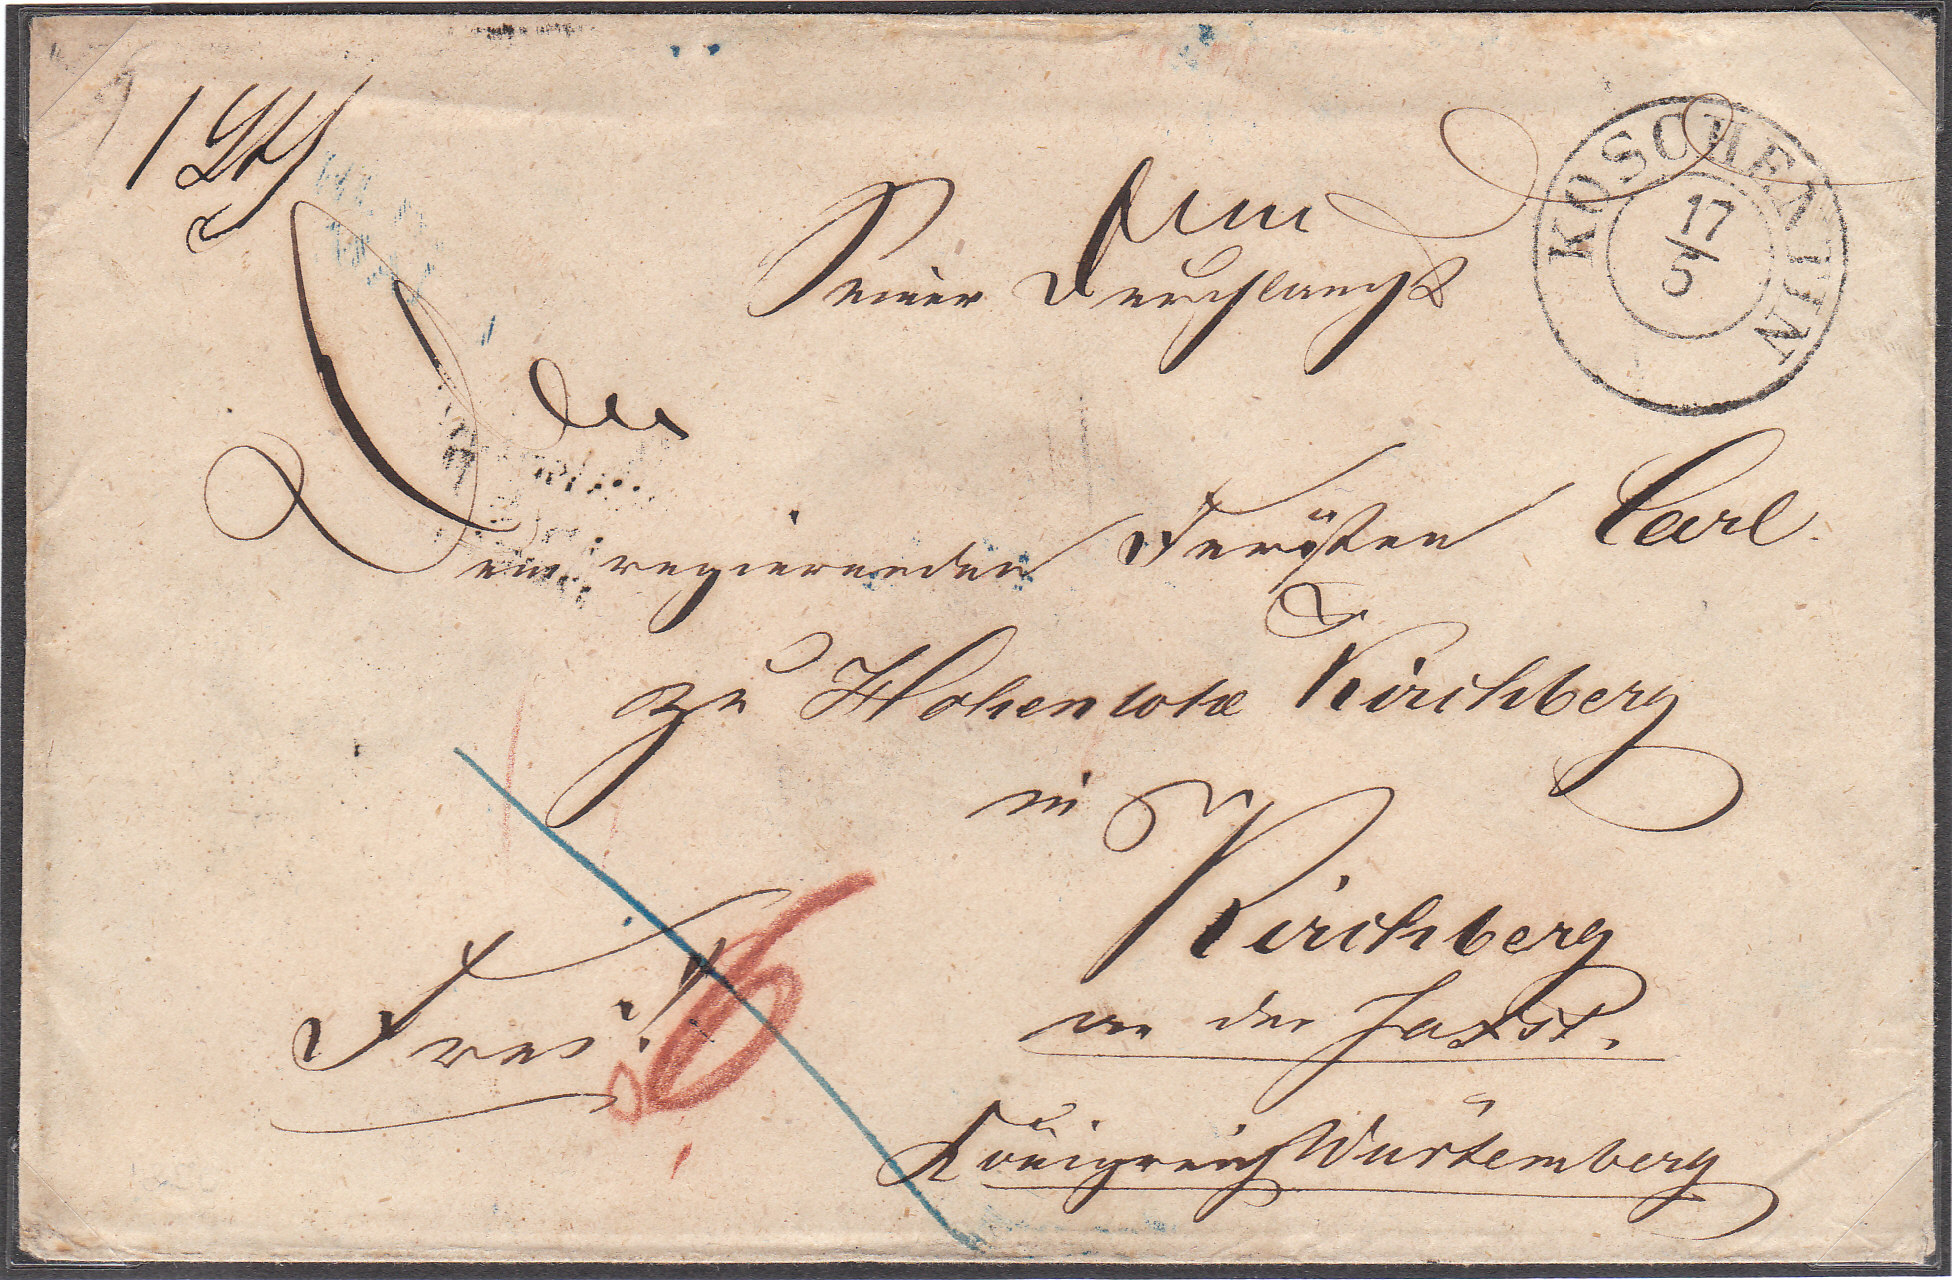 1 Lth
KOSCHENTIN
17/5
Seiner Durchlaucht
dem regierenden Fürsten Carl.
zu Hohenlohe Kirchberg
in
Kirchberg
an der Jaxst.
Frei!
Königreich Würtemberg